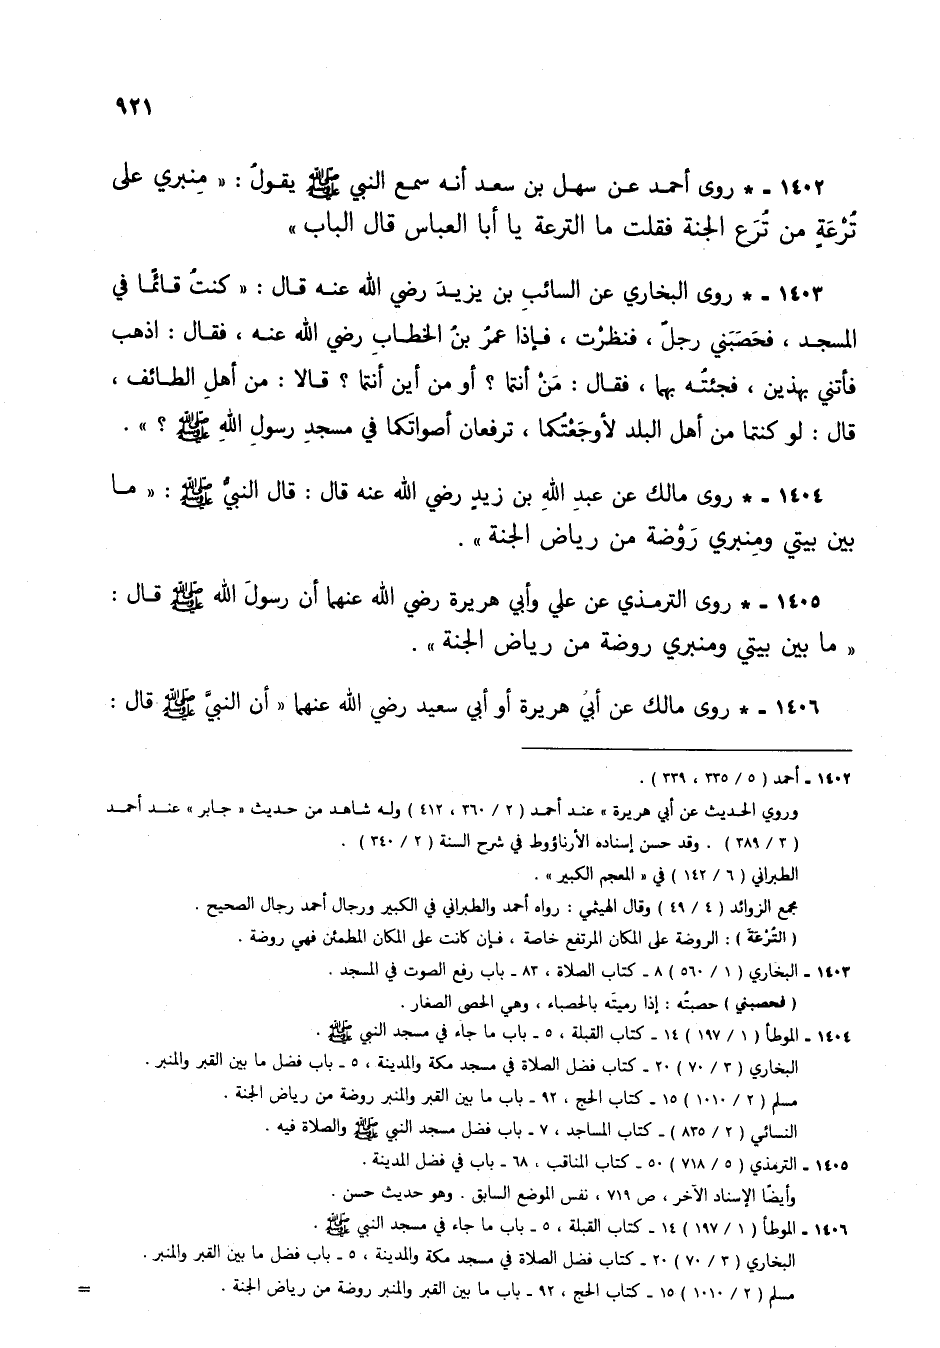 ٩٢١
١٤٠٢ - * روى أحمد عن سهل بن سعد أنه سمع النبي ﷺ يقولُ : « مِنبري على
تُرْعَةٍ من تُرَع الجنة فقلت ما الترعة يا أبا العباس قال الباب »
١٤٠٣ - * روى البخاري عن السائبِ بن يزيدَ رضي الله عنه قال : « كنتُ قائمًا في
المسجد ، فحَصَبَني رجلٌ ، فنظرْت ، فإذا عمرُ بنُ الخطابِ رضي الله عنه ، فقال : اذهب
فأتني بهذين ، فجئتُه بهما ، فقال : مَنْ أنتما ؟ أو من أين أنتما ؟ قالا : من أهلِ الطائف ،
قال : لو كنتما من أهل البلد لأوجَعْتُكما ، ترفعان أصواتَكما في مسجدِ رسولِ اللهِ ﷺ ؟ » .
١٤٠٤ - * روى مالك عن عبدِ اللهِ بن زيدٍ رضي الله عنه قال : قال النبيُّ ﷺ : « ما
بين بيتي ومنبري رَوْضة من رياض الجنة » .
١٤٠٥ - * روى الترمذي عن علي وأبي هريرة رضي الله عنهما أن رسولَ الله ﷺ قال :
« ما بين بيتي ومنبري روضة من رياض الجنة » .
١٤٠٦ - * روى مالك عن أبي هريرة أو أبي سعيد رضي الله عنهما « أن النبيَّ ﷺ قال :
١٤٠٢ - أحمد ( ٥ / ٣٣٥ ، ٣٣٩ ) .
وروي الحديث عن أبي هريرة » عند أحمد ( ٢ / ٣٦٠ ، ٤١٢ ) وله شاهد من حديث « جابر » عند أحمد
( ٣ / ٣٨٩ ) . وقد حسن إسناده الأرناؤوط في شرح السنة ( ٢ / ٣٤٠ ) .
الطبراني ( ٦ / ١٤٢ ) في « المعجم الكبير » .
مجمع الزوائد ( ٤ / ٤٩ ) وقال الهيثمي : رواه أحمد والطبراني في الكبير ورجال أحمد رجال الصحيح .
( التُرْعَة ) : الروضة على المكان المرتفع خاصة ، فإن كانت على المكان المطمئن فهي روضة .
١٤٠٣ - البخاري ( ١ / ٥٦٠ ) ٨ - كتاب الصلاة ، ٨٣ - باب رفع الصوت في المسجد .
( فحصبني ) حصبتُه : إذا رميتَه بالحصباء ، وهي الحصى الصغار .
١٤٠٤ - الموطأ ( ١ / ١٩٧ ) ١٤ - كتاب القبلة ، ٥ - باب ما جاء في مسجد النبي ﷺ .
البخاري ( ٣ / ٧٠ ) ٢٠ - كتاب فضل الصلاة في مسجد مكة والمدينة ، ٥ - باب فضل ما بين القبر والمنبر .
مسلم ( ٢ / ١٠١٠ ) ١٥ - كتاب الحج ، ٩٢ - باب ما بين القبر والمنبر روضة من رياض الجنة .
النسائي ( ٢ / ٨٣٥ ) - كتاب المساجد ، ٧ - باب فضل مسجد النبي ﷺ والصلاة فيه .
١٤٠٥ - الترمذي ( ٥ / ٧١٨ ) ٥٠ - كتاب المناقب ، ٦٨ - باب في فضل المدينة .
وأيضًا الإسناد الآخر ، ص ٧١٩ ، نفس الموضع السابق . وهو حديث حسن .
١٤٠٦ - الموطأ ( ١ / ١٩٧ ) ١٤ - كتاب القبلة ، ٥ - باب ما جاء في مسجد النبي ﷺ .
البخاري ( ٣ / ٧٠ ) ٢٠ - كتاب فضل الصلاة في مسجد مكة والمدينة ، ٥ - باب فضل ما بين القبر والمنبر .
مسلم ( ٢ / ١٠١٠ ) ١٥ - كتاب الحج ، ٩٢ - باب ما بين القبر والمنبر روضة من رياض الجنة .
=